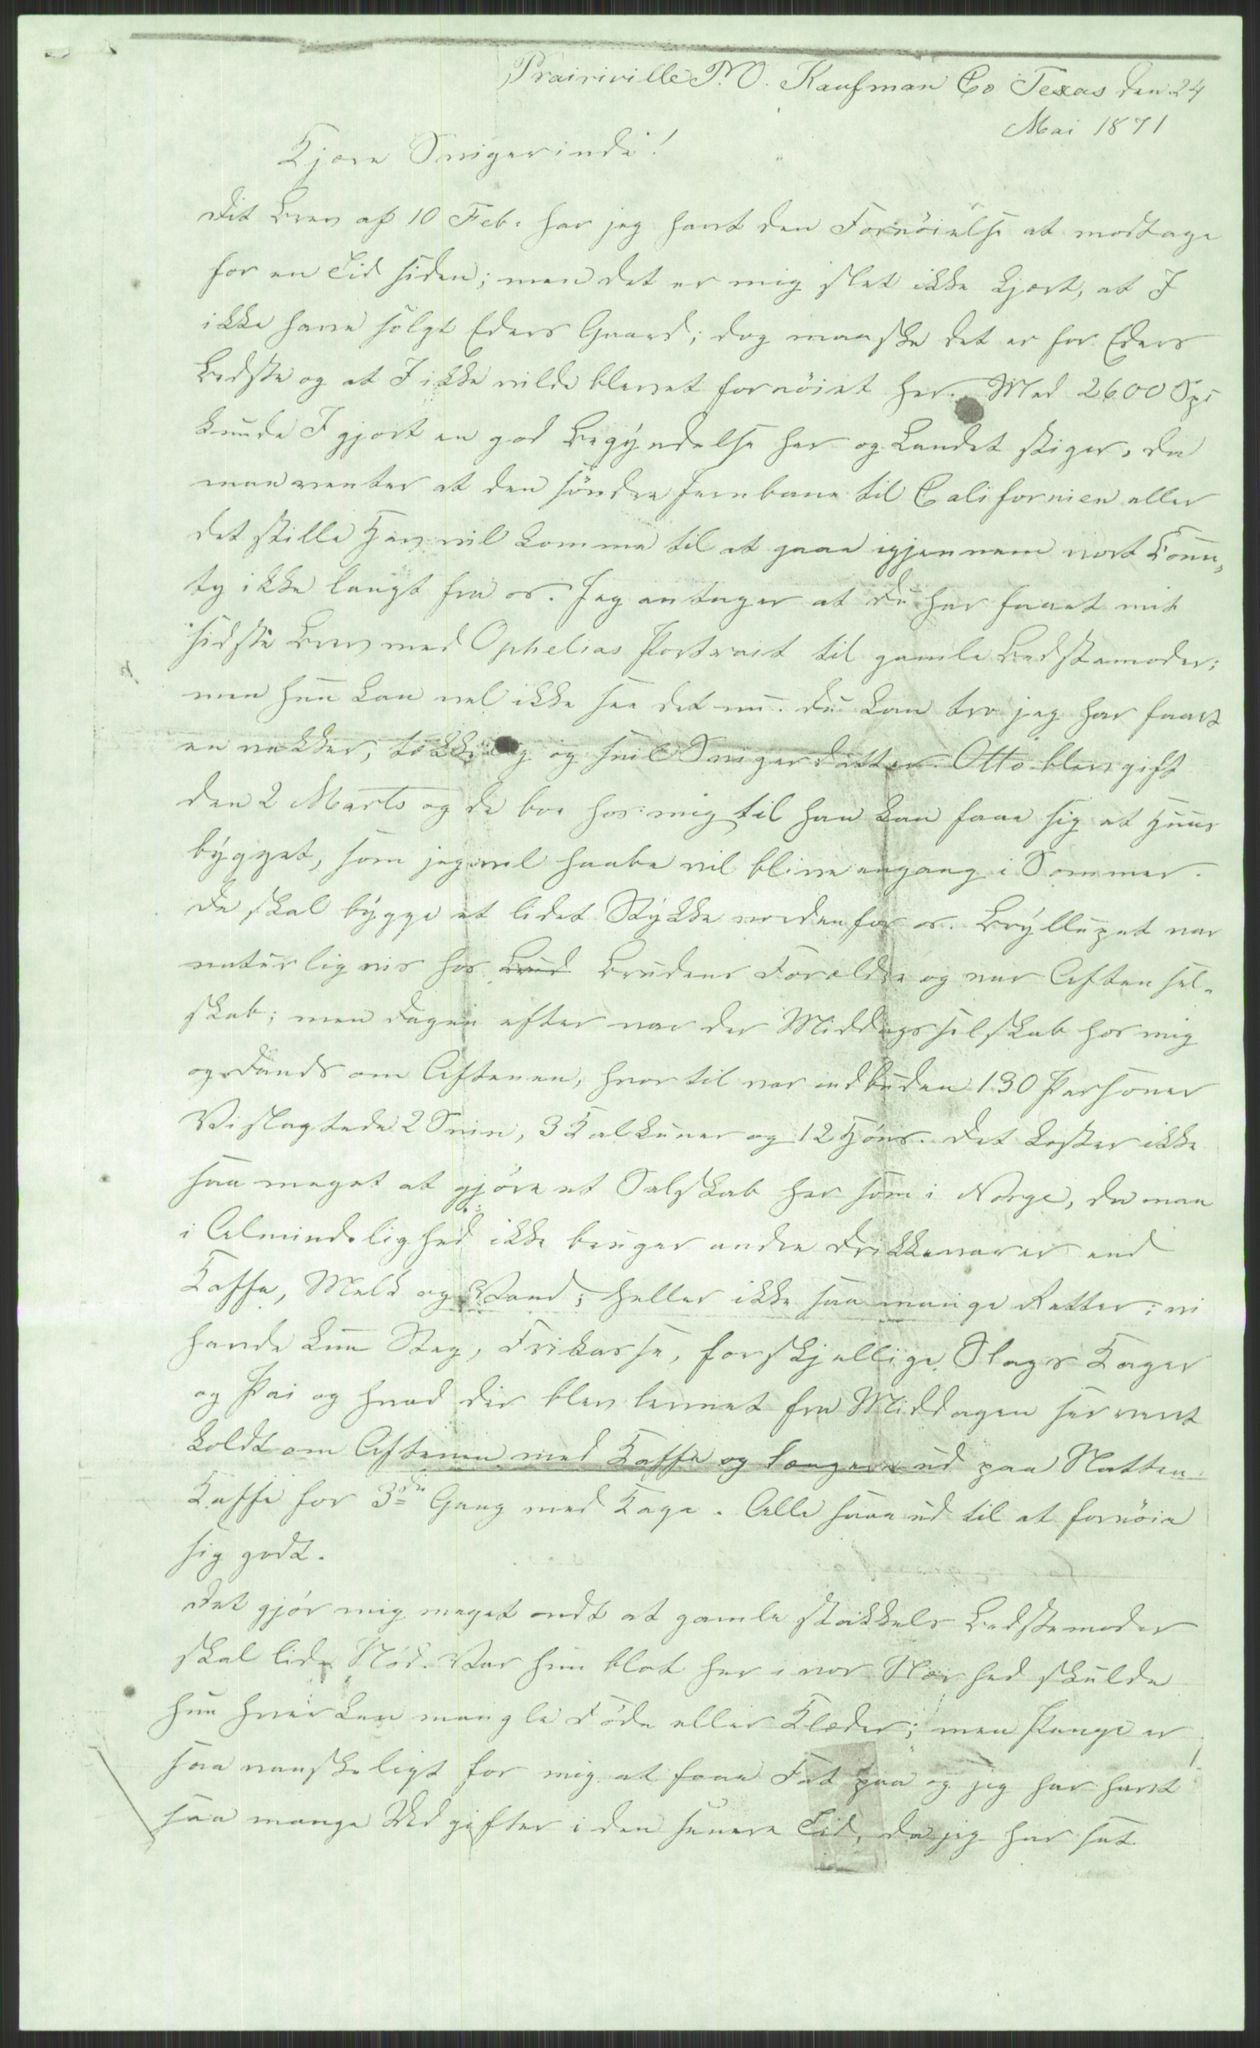 Prairiville P.O. Kaufman Co Texas den 24
Mai 1871
Kjære Svigerinde!
Dit Brev af 10 Feb. har jeg havt den Fornöielse at modtage
for en Tid siden; men det er mig slet ikke kjært, at I
ikke have sölgt Eders Gaard; dog maaske det er for Eders
Bedste og at I ikke vilde blevet fornöiet her. Med 2600 Spd
kunde I gjort en god Begyndelse her og Landet stiger, da
man venter at den söndre Jernbane til Californien eller
det stille Hav vil komme til at gaae igjennem vort Coun„
ty ikke langt fra os. Jeg antager at Du har faaet mit
sidste Brev med Ophelias Portrait til gamle Bedstemoder;
men hun kan vel ikke see det nu. Du kan tro jeg har faaet
en vakker, tækkelig og snil Svigerdatter. Otto blev gift
den 2 Marts og de boe hos mig til han kan faae sig et Huus
bygget, som jeg vil haabe vil blive engang i Sommer.
De skal bygge et lidet Stykke nordenfor os. Bryllupet var
naturligvis hos Brud Brudens Forældre og var Aftensel-
skab; men dagen efter var der Middagsselskab hos mig
og Dands om Aftenen, hvortil var indbuden 130 Personer
Vi slagtede 2 Sviin, 3 Kalkuner og 12 Höns. Det koster ikke
saa meget at gjöre et Selskab her som i Norge, da man
i Almindelighed ikke bruger andre Drikkevarer end
Kaffe, Melk og Vand; heller ikke saa mange Retter; vi
havde kun Steg, Frikasse, forskjellige Slags Kager
og Pai og hvad der blev levnet fra Middagen servert
koldt om Aftenen med Kaffe og længere ud paa Natten
Kaffe for 3die Gang med Kage. Alle saae ud til at fornöie
sig godt.
Det gjör mig meget ondt at gamle stakkels Bedstemoder
skal lide Nöd. Var hun blot her i vor Nærhed skulde
hun hverken mangle Föde eller Klæder; men Penge er
saa vanskeligt for mig at faae Fat paa og jeg har havt
saa mange Udgifter i den senere Tid, da jeg har sat